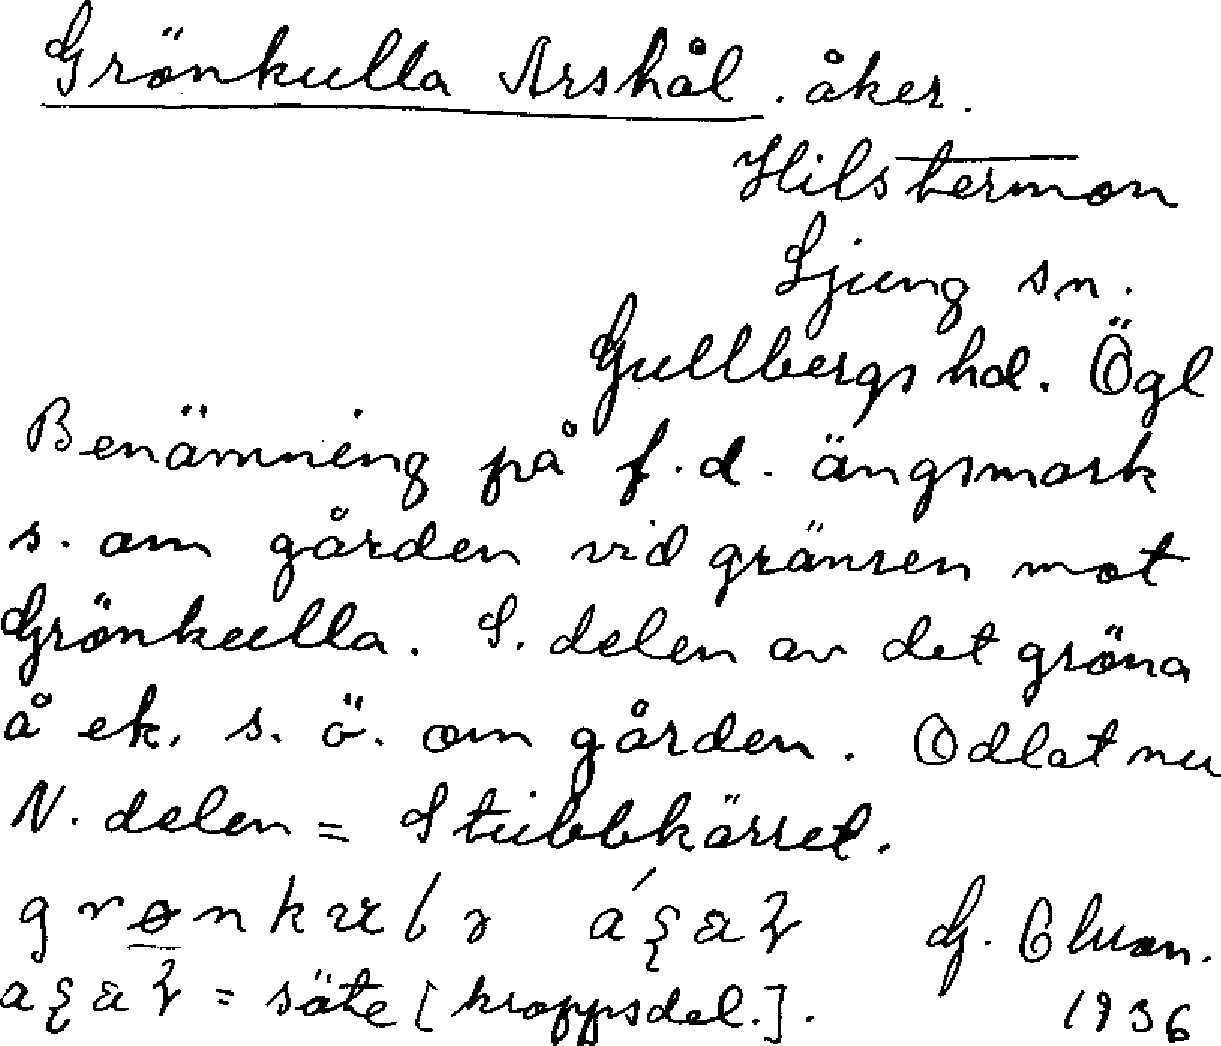 Grönkulla Arshål. åker.
Hilstermon
Ljung sn.
Gullbergs hd. Ögl
Benämning på f.d. ängsmark
s. om gården vid gränsen mot
Grönkulla. S. delen av det gröna
å ek. s. ö. om gården. Odlat nu
N. delen = Stubbkärret.
G.
= säte [kroppsdel.]. 1936